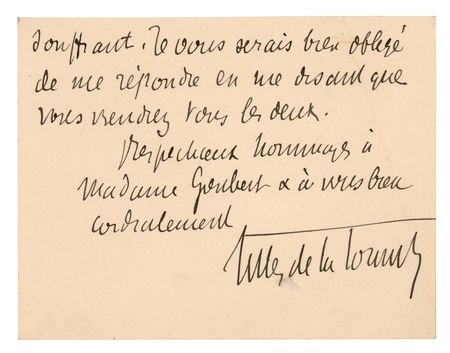 souffrant. Je vous serais bien obligé
de me répondre en me disant que
vous viendrez tous les deux.
Respectueux hommages à
Madame Geubert & à vous bien
cordialement
Gilles de la Tourette